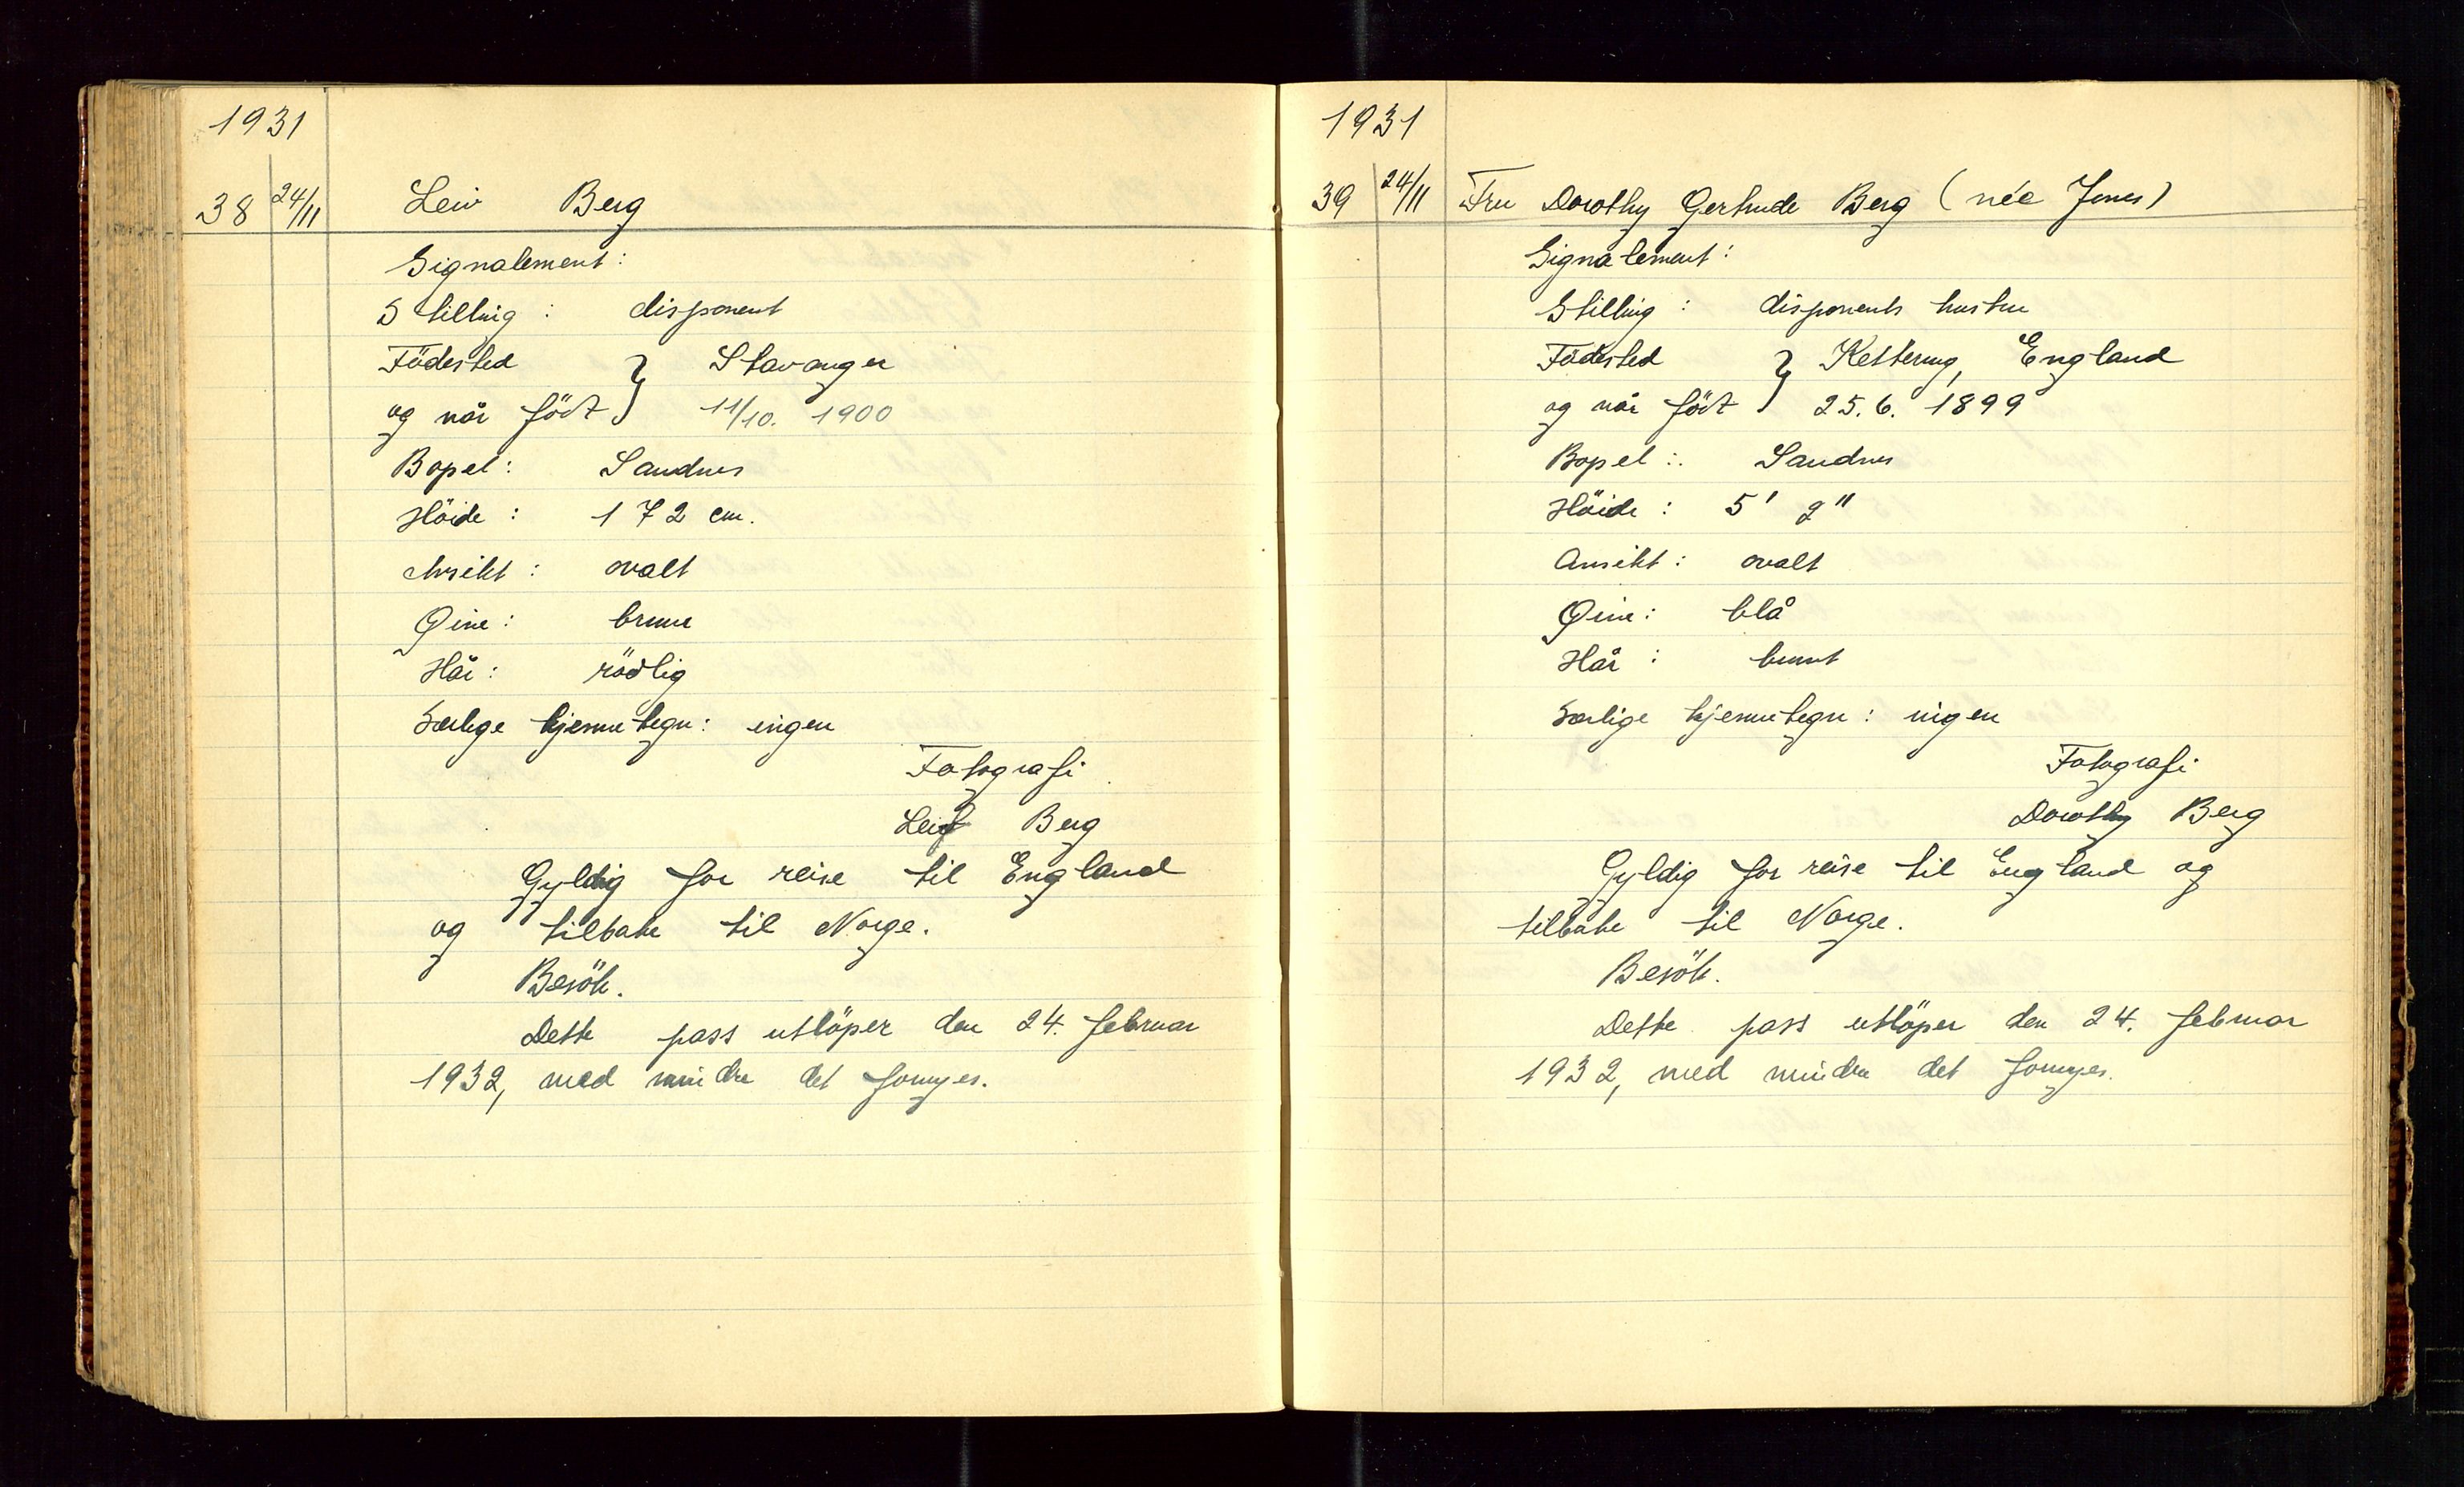 1931
38 24/11 Leiv Berg
Signalement:
Stilling: disponent
Födested } Stavanger
og når födt } 11/10. 1900
Bopel: Sandnes
Höide: 172 cm.
Ansikt: ovalt
Øine: brune
Hår: rödlig
Særlige kjennetegn: ingen
Fotografi
Leif Berg
Gyldig for reise til England
og tilbake til Norge.
Besök.
Dette pass utlöper den 24. februar
1932, med mindre det fornyes.
1931
39 24/11 Fru Dorothy Gertrude Berg (née Jones)
Signalement:
Stilling: disponents hustru
Födested } Kettering, England
og når födt } 25.6. 1899
Bopel: Sandnes
Höide: 5' 2"
Ansikt: ovalt
Øine: blå
Hår: brunt
Særlige kjennetegn: ingen
Fotografi
Dorothy Berg
Gyldig for reise til England og
tilbake til Norge.
Besök.
Dette pass utlöper den 24. februar
1932, med mindre det fornyes.